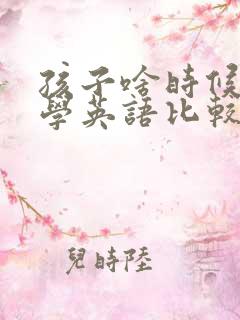 孩子啥时候
學英語比較
兒時陸